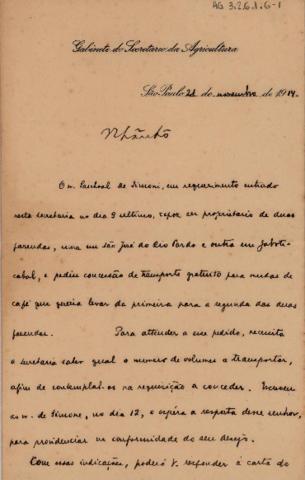 AG 3.2.6.1.6-1
Gabinete do Secretario da Agricultura
São Paulo 21 de novembro de 1914.
Nhãnhô
O sr. Paschoal de Simoni, em requerimento entrado
nesta secretaria no dia 9 ultimo, expoz ser proprietario de duas
fazendas, uma em São José do Rio Pardo e outra em Jaboti-
cabal, e pediu concessão de transporte gratuito para mudas de
café que queria levar da primeira para a segunda das duas
fazendas. Para attender a esse pedido, necessita
a secretaria saber qual o numero de volumes a transportar,
afim de contemplal-os na requisição a conceder. Escreveu
ao sr. de Simone, no dia 12, e espera a resposta desse senhor,
para providenciar na conformidade do seu desejo.
Com essas indicações, poderá V. responder á carta do